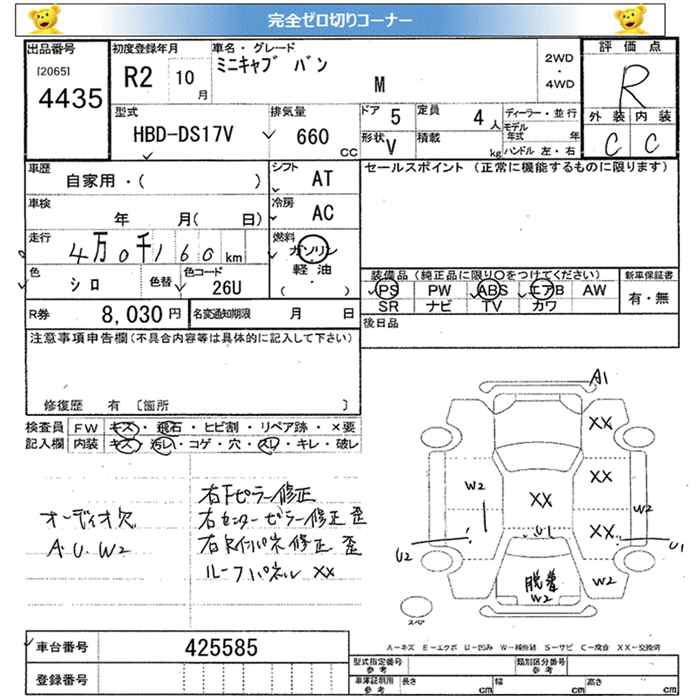 完全ゼロ切りコーナー
出品番号 [2065] 4435
初度登録年月 R2 10月
車名・グレード ミニキャブ バン M
2WD・4WD
評価点 R
外装 C 内装 C
型式 HBD-DS17V
排気量 660 CC
ドア 5 定員 4人
形状 V 積載 kg
ディーラー・並行
モデル年式 年
ハンドル 左・右
車歴 自家用・( )
シフト AT
セールスポイント (正常に機能するものに限ります)
車検 年 月( 日)
冷房 AC
走行 4万0千160km
燃料 ガソリン 軽油 ( ・ )
色 シロ 色替 色コード 26U
装備品 (純正品に限り○をつけてください)
PS PW ABS エアB AW
SR ナビ TV カワ
新車保証書 有・無
R券 8,030円 名変通知期限 月 日
後日品
注意事項申告欄(不具合内容等は具体的に記入して下さい)
修復歴 有 〔箇所 〕
検査員記入欄
FW キズ・飛石・ヒビ割・リペア跡・×要
内装 キズ・汚レ・コゲ・穴・スレ・キレ・破レ
オーディオ欠
A.U.W2
右Fピラー修正
右センターピラー修正 歪
右Rインパネ修正 歪
ルーフパネル XX
A1
XX
XX
W2
XX
W2
XX
U1
U2
U1
脱着
W2
W2
スペア
A−キズ E−エクボ U−凹み W−補修跡 S−サビ C−腐食 XX−交換済
車台番号 425585
登録番号
型式指定番号 参考 類別区分番号 参考
車庫証明用 参考 長さ cm 幅 cm 高さ cm